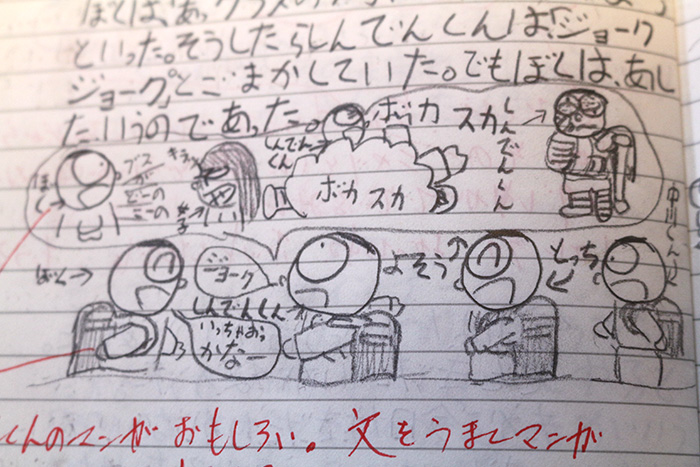 ぼくは、あっクラスの
といった。そうしたらしんでんくんは、「ジョーク
ジョーク」とごまかしていた。でもぼくは、あし
た、いうのであった。
ボカ
スカ
しんでんくん
しんでんくん
ぼく
ブス
が
どーの
こーの
キラッ
女子
ボカ スカ
中川くん
ぼく→
ジョーク
よそう
とっち
しんでんくん
いっちゃおっ
かなー
くんのマンガおもしろい。文をうまくマンガ